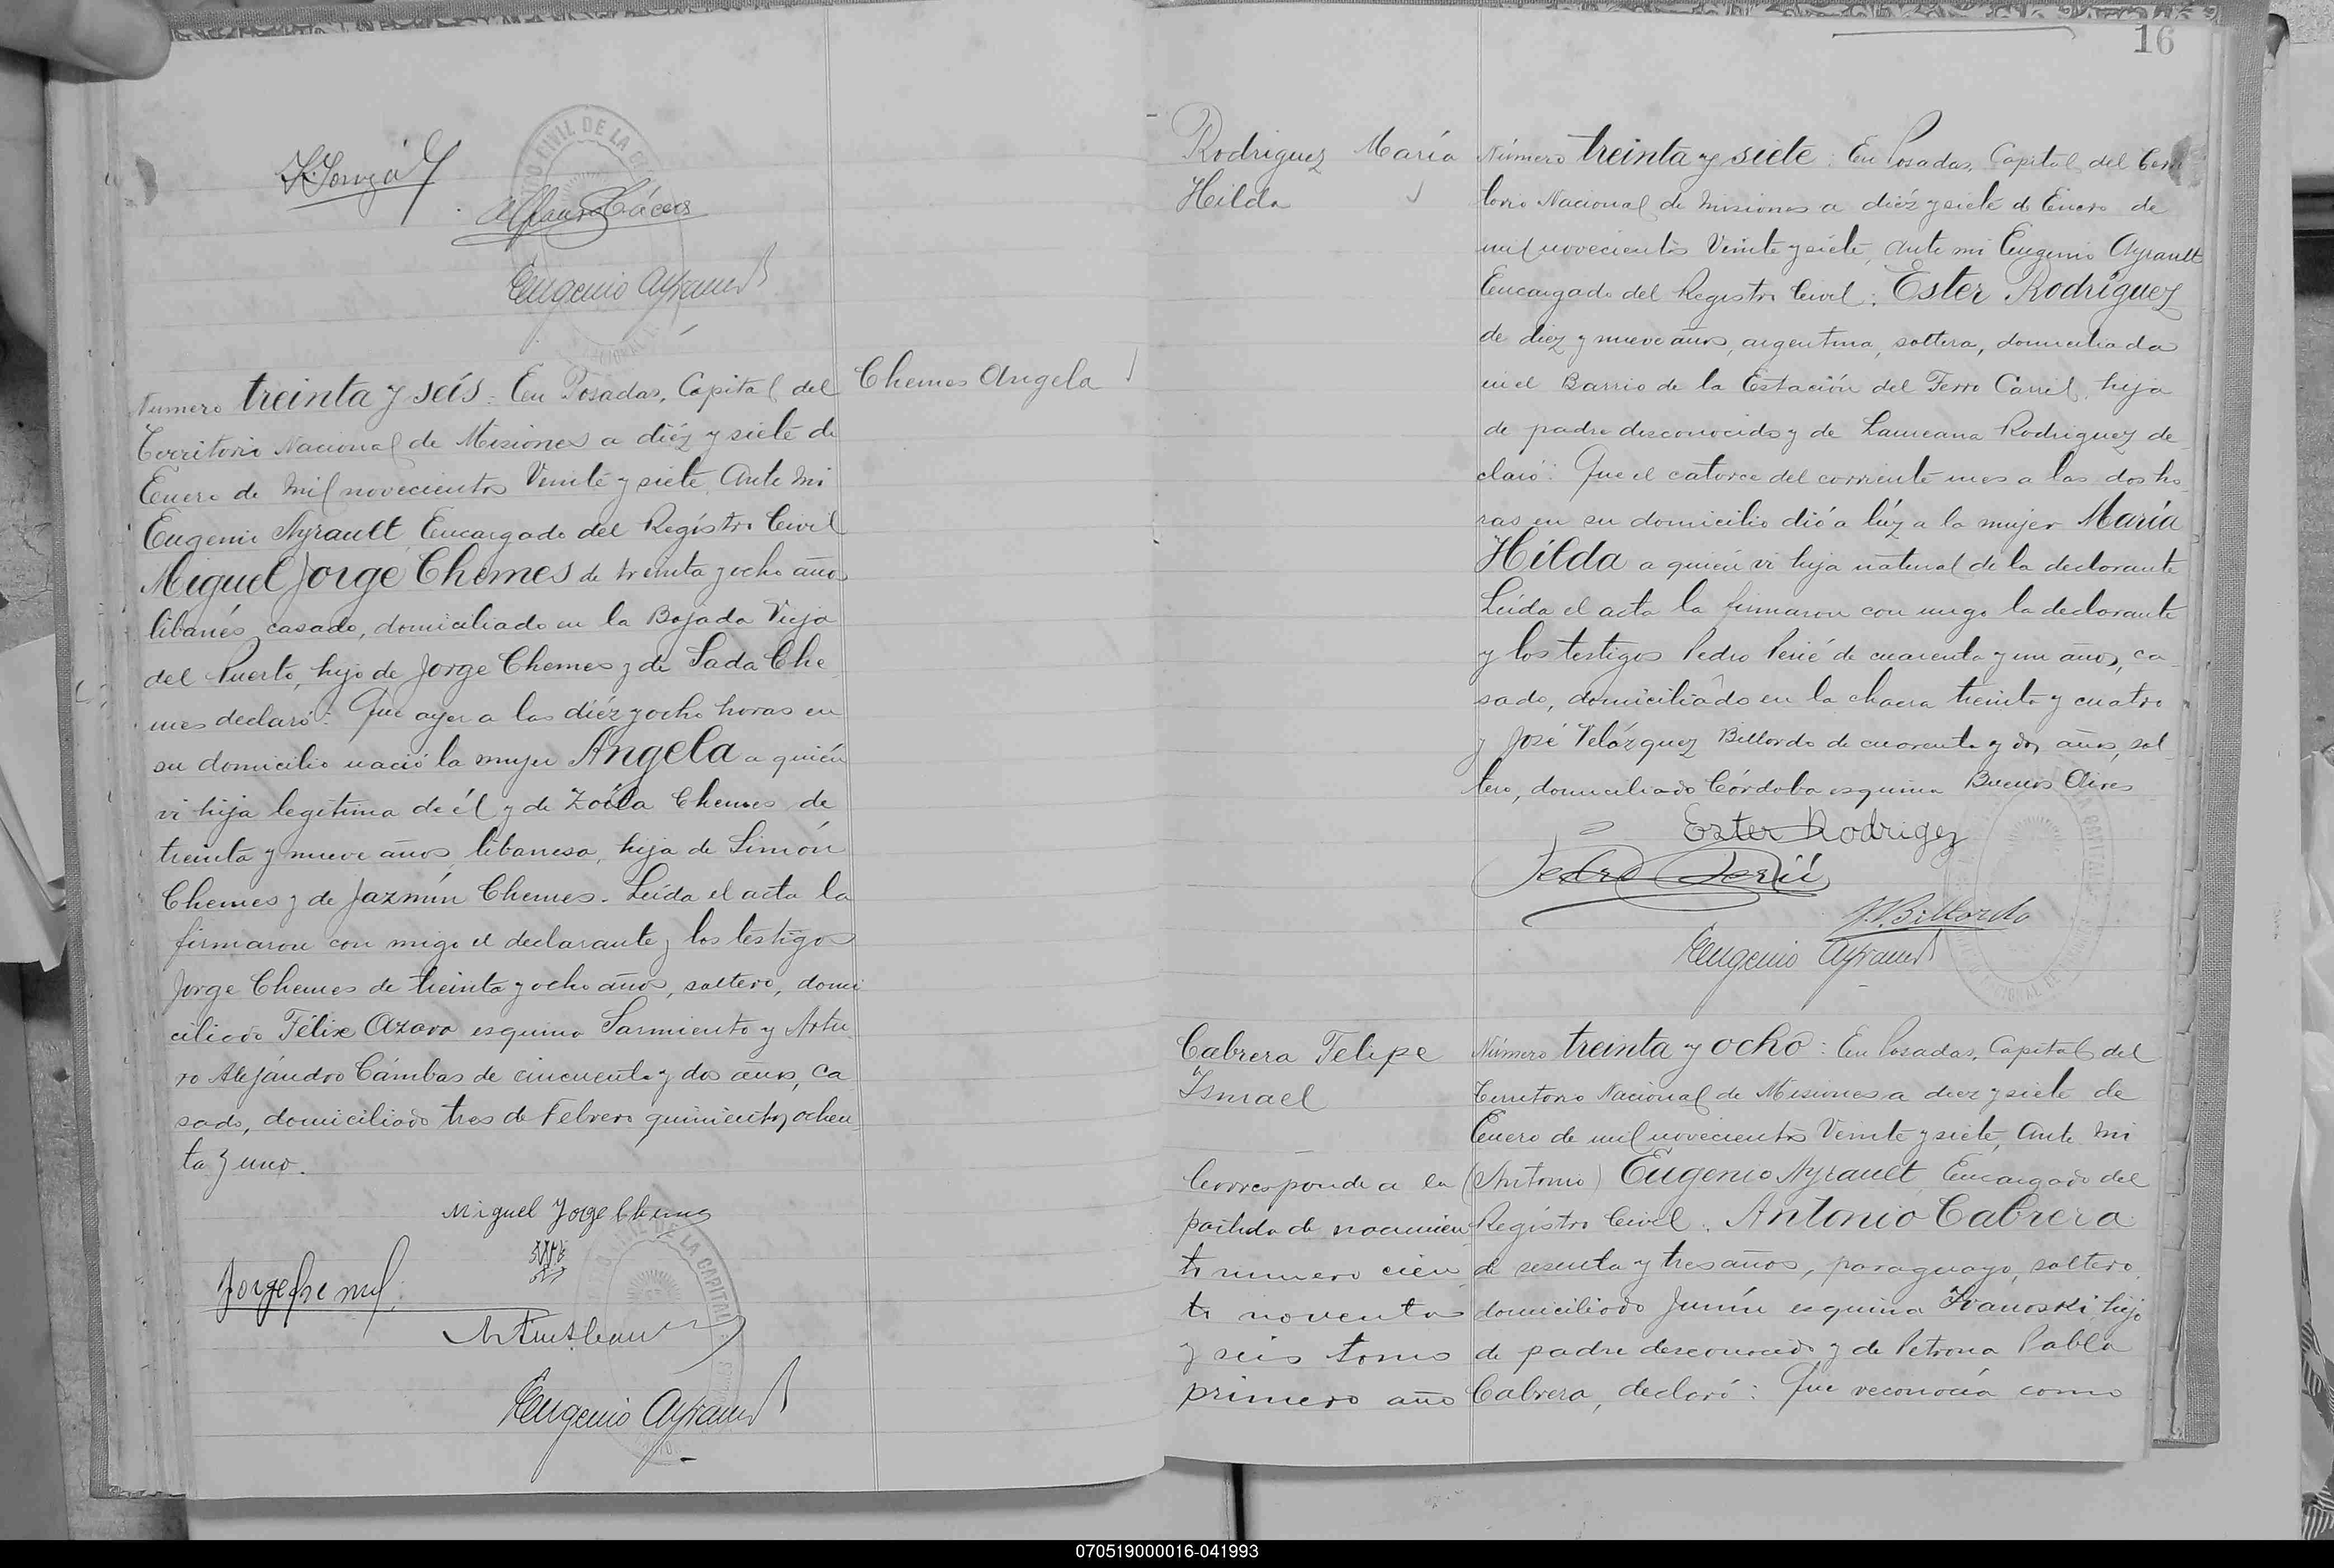 Eugenio Ayrault
Número treinta y seis: En Posadas, Capital del
Territorio Nacional de Misiones a diéz y siete de
Enero de mil novecientos Veinte y siete, Ante mi
Eugenio Ayrault Encargado del Registro Civil
Miguel Jorge Chemes de treinta y ocho años
libanés, casado, domiciliado en la Bajada Vieja
del Puerto, hijo de Jorge Chemes y de Sada Che
mes declaró: Que ayer a las diéz y ocho horas en
su domicilio nació la mujer Angela a quién
vi hija legítima de él y de Zoila Chemes de
treinta y nueve años, libanesa, hija de Simón
Chemes y de Jazmín Chemes. Leída el acta la
firmaron con migo el declarante y los testigos
Jorge Chemes de treinta y ocho años, soltero, domi
ciliado Félix Azara esquina Sarmiento y Artu-
ro Alejándro Cámbas de cincuenta y dos años, ca
sado, domiciliado tres de Febrero quinientos ochen
ta y uno.
Chemes Angela
Miguel Jorge Chemes
Jorge Chemes
Eugenio Ayrault
REGISTRO CIVIL DE LA CAPITAL
16
Rodriguez María
Hilda
Número treinta y siete: En Posadas, Capital del Terri
torio Nacional de Misiones a diéz y siete de Enero de
mil novecientos Veinte y siete, ante mi Eugenio Ayrault
Encargado del Registro Civil: Ester Rodríguez
de diez y nueve años, argentina, soltera, domiciliada
en el Barrio de la Estación del Ferro Carril, hija
de padre desconocido y de Laureana Rodriguez de
claró: Que el catorce del corriente mes a las dos ho
ras en su domicilio dió a lúz a la mujer María
Hilda a quién vi hija natural de la declarante
Leída el acta la firmaron con migo la declarante
y los testigos Pedro Perié de cuarenta y un años, ca
sado, domiciliado en la chacra treinta y cuatro
y José Velázquez Billordo de cuarenta y dos años, sol
tero, domiciliado Córdoba esquina Buenos Aires
Ester Rodrigez
Pedro Perié
J. V. Billordo
Eugenio Ayrault
Cabrera Felipe
Ismael
Corresponde a la
partida de nacimien
to numero cien
to noventa
y seis tomo
primero año
Número treinta y ocho: En Posadas, Capital del
Territorio Nacional de Misiones a diez y siete de
Enero de mil novecientos Veinte y siete, Ante mi
(Antonio) Eugenio Ayrault Encargado del
Registro Civil: Antonio Cabrera
de sesenta y tres años, paraguayo, soltero,
domiciliado Junín esquina Ivanoski, hijo
de padre desconocido y de Petrona Pabla
Cabrera, declaró: Que reconocía como
070519000016-041993